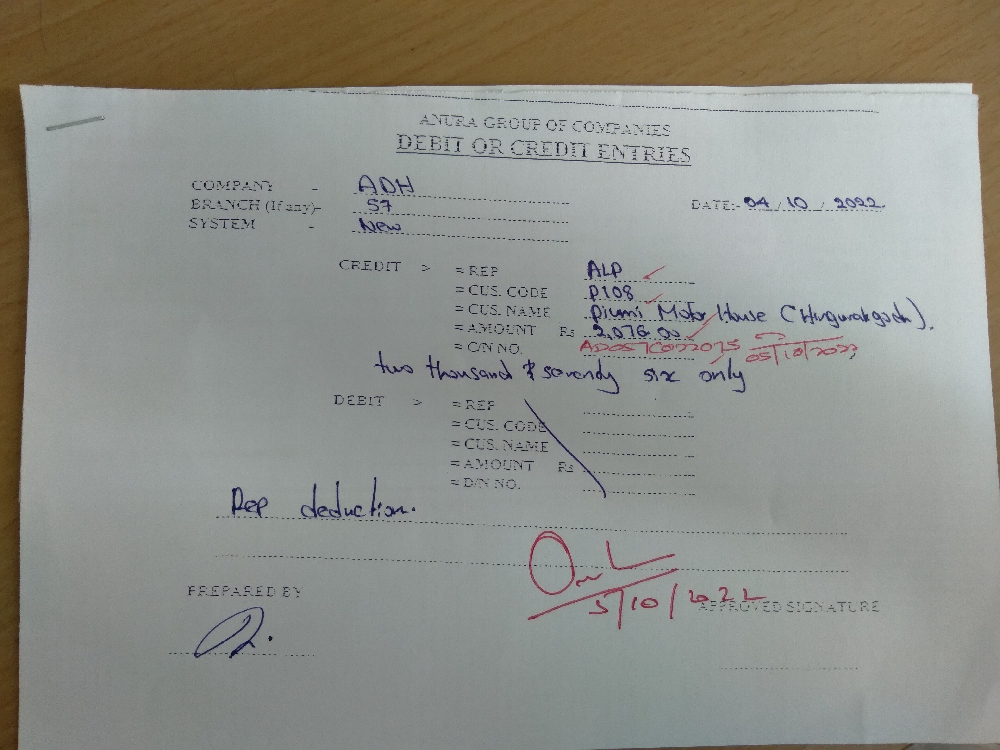 ANURA GROUP OF COMPANIES
DEBIT OR CREDIT ENTRIES
COMPANY - ADH
BRANCH (If any)- S7
SYSTEM - New
DATE:- 04 / 10 / 2022.
CREDIT > = REP ALP
= CUS. CODE P108
= CUS. NAME Piumi Motor House (Hingurakgoda).
= AMOUNT Rs 2,076.00
= C/N NO. 05/10/2022
two thousand & seventy six only
DEBIT > = REP
= CUS. CODE
= CUS. NAME
= AMOUNT Rs
= D/N NO.
Rep deduction.
5/10/2022
PREPARED BY
APPROVED SIGNATURE